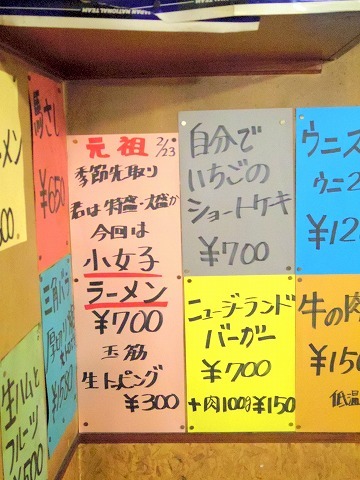 JAPAN NATIONAL TEAM
JAPAN NATIONAL TEAM
メン
00
馬さし
¥650
三角バラ
厚切り
¥1580
生ハムと
フルーツ
¥500
元祖 2/23
季節先取り
君は特盛・大盛か
今回は
小女子
ラーメン
¥700
玉筋
生トッピング
¥300
自分で
いちごの
ショートケーキ
¥700
ニュージーランド
バーガー
¥700
+肉100g¥150
ウニス
ウニ2
¥12
牛の肉
¥150
低温